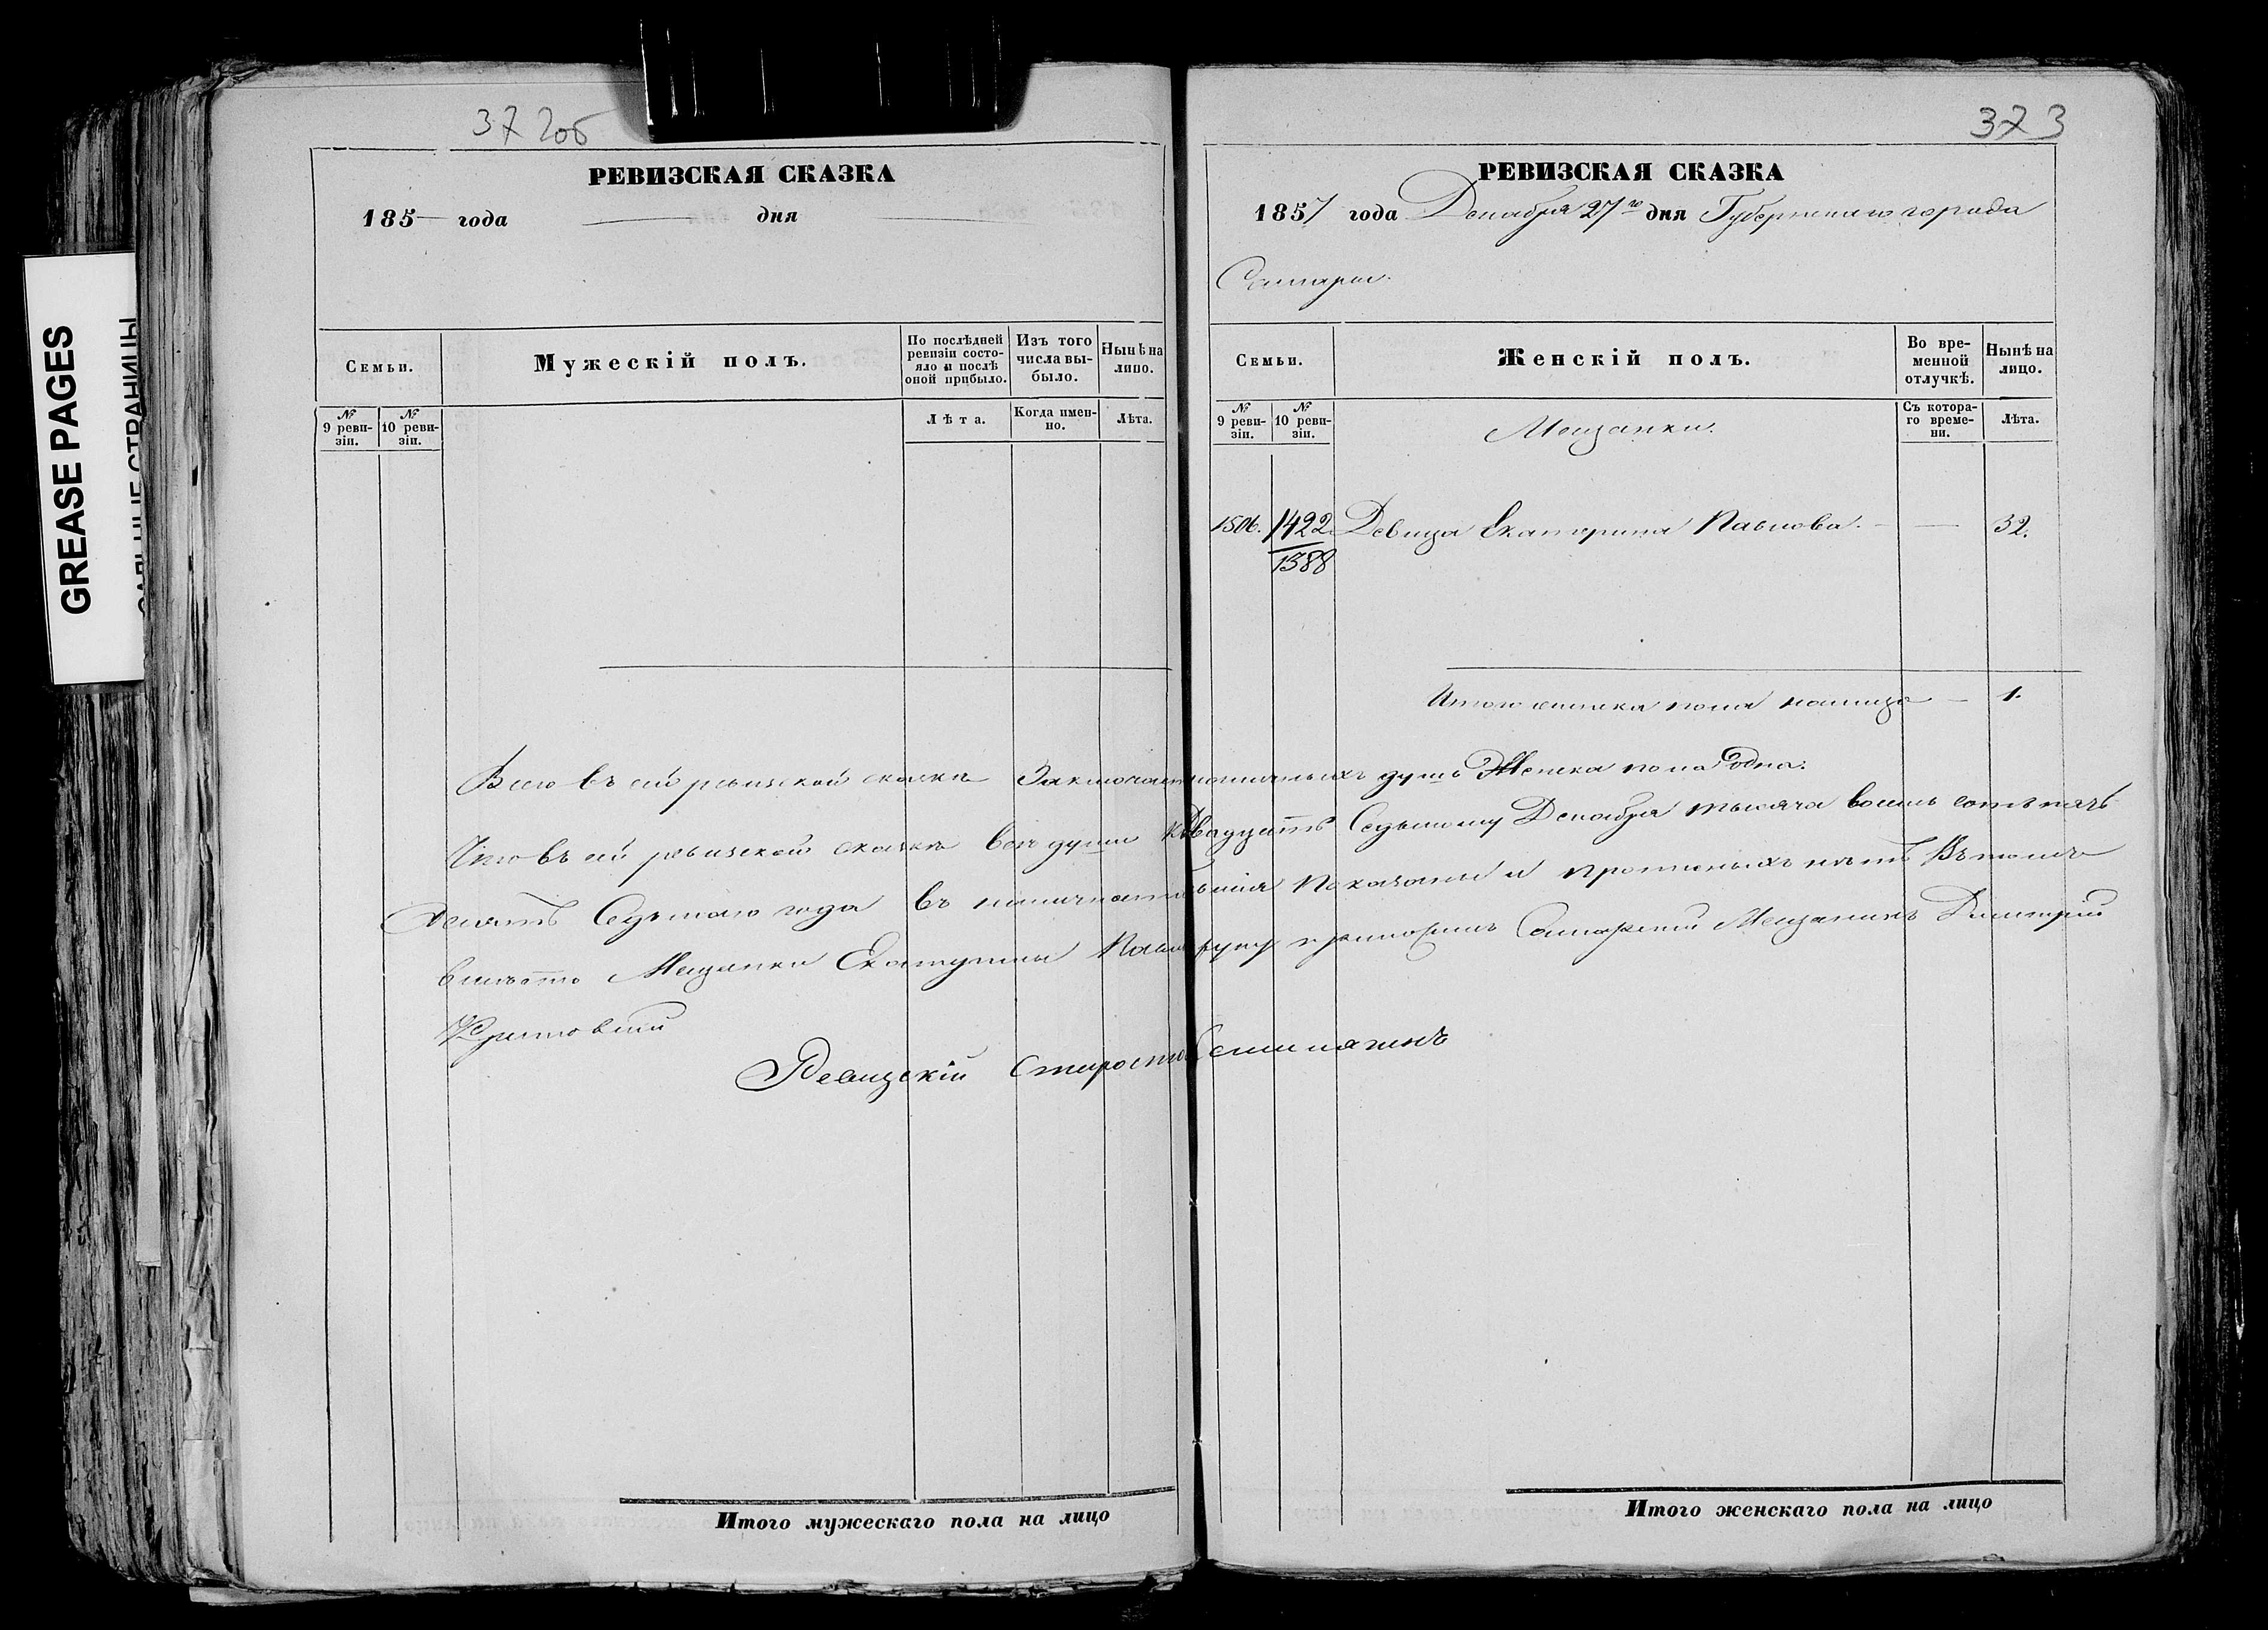 372об
РЕВИЗСКАЯ СКАЗКА
185— года — дня
Семьи.
Мужескій полъ.
По послѣдней ревизіи состояло и послѣ оной прибыло.
Изъ того числа выбыло.
Нынѣ на лицо.
№ 9 ревизіи.
№ 10 ревизіи.
Лѣта.
Когда именно.
Лѣта.
373
РЕВИЗСКАЯ СКАЗКА
1857 года Декабря 27го дня Губернскаго города
Самары.
Семьи.
Женскій полъ.
Во временной отлучкѣ.
Нынѣ на лицо.
№ 9 ревизіи.
№ 10 ревизіи.
Мещанки.
Съ котораго времени.
Лѣта.
1506. 1422 Девица Екатерина Павлова. — — 32.
1388
Итого женска пола налицо — 1.
Всего въ сей ревизской сказкѣ Заключается наличныхъ душъ Женска пола Одна.
Что въ сей ревизской сказкѣ все души къ Двадцать Седьмому Декабря тысяча восемь сотъ пять
десятъ Седьмаго года въ наличности Показаны и прописныхъ нѣтъ Въ томъ
вместо Мещанки Екатерины Павловой руку приложилъ Самарский Мещанинъ Дмитрій
Ревизскій Староста
Итого мужескаго пола на лицо
Итого женскаго пола на лицо
GREASE PAGES
САЛЬНЫЕ СТРАНИЦЫ